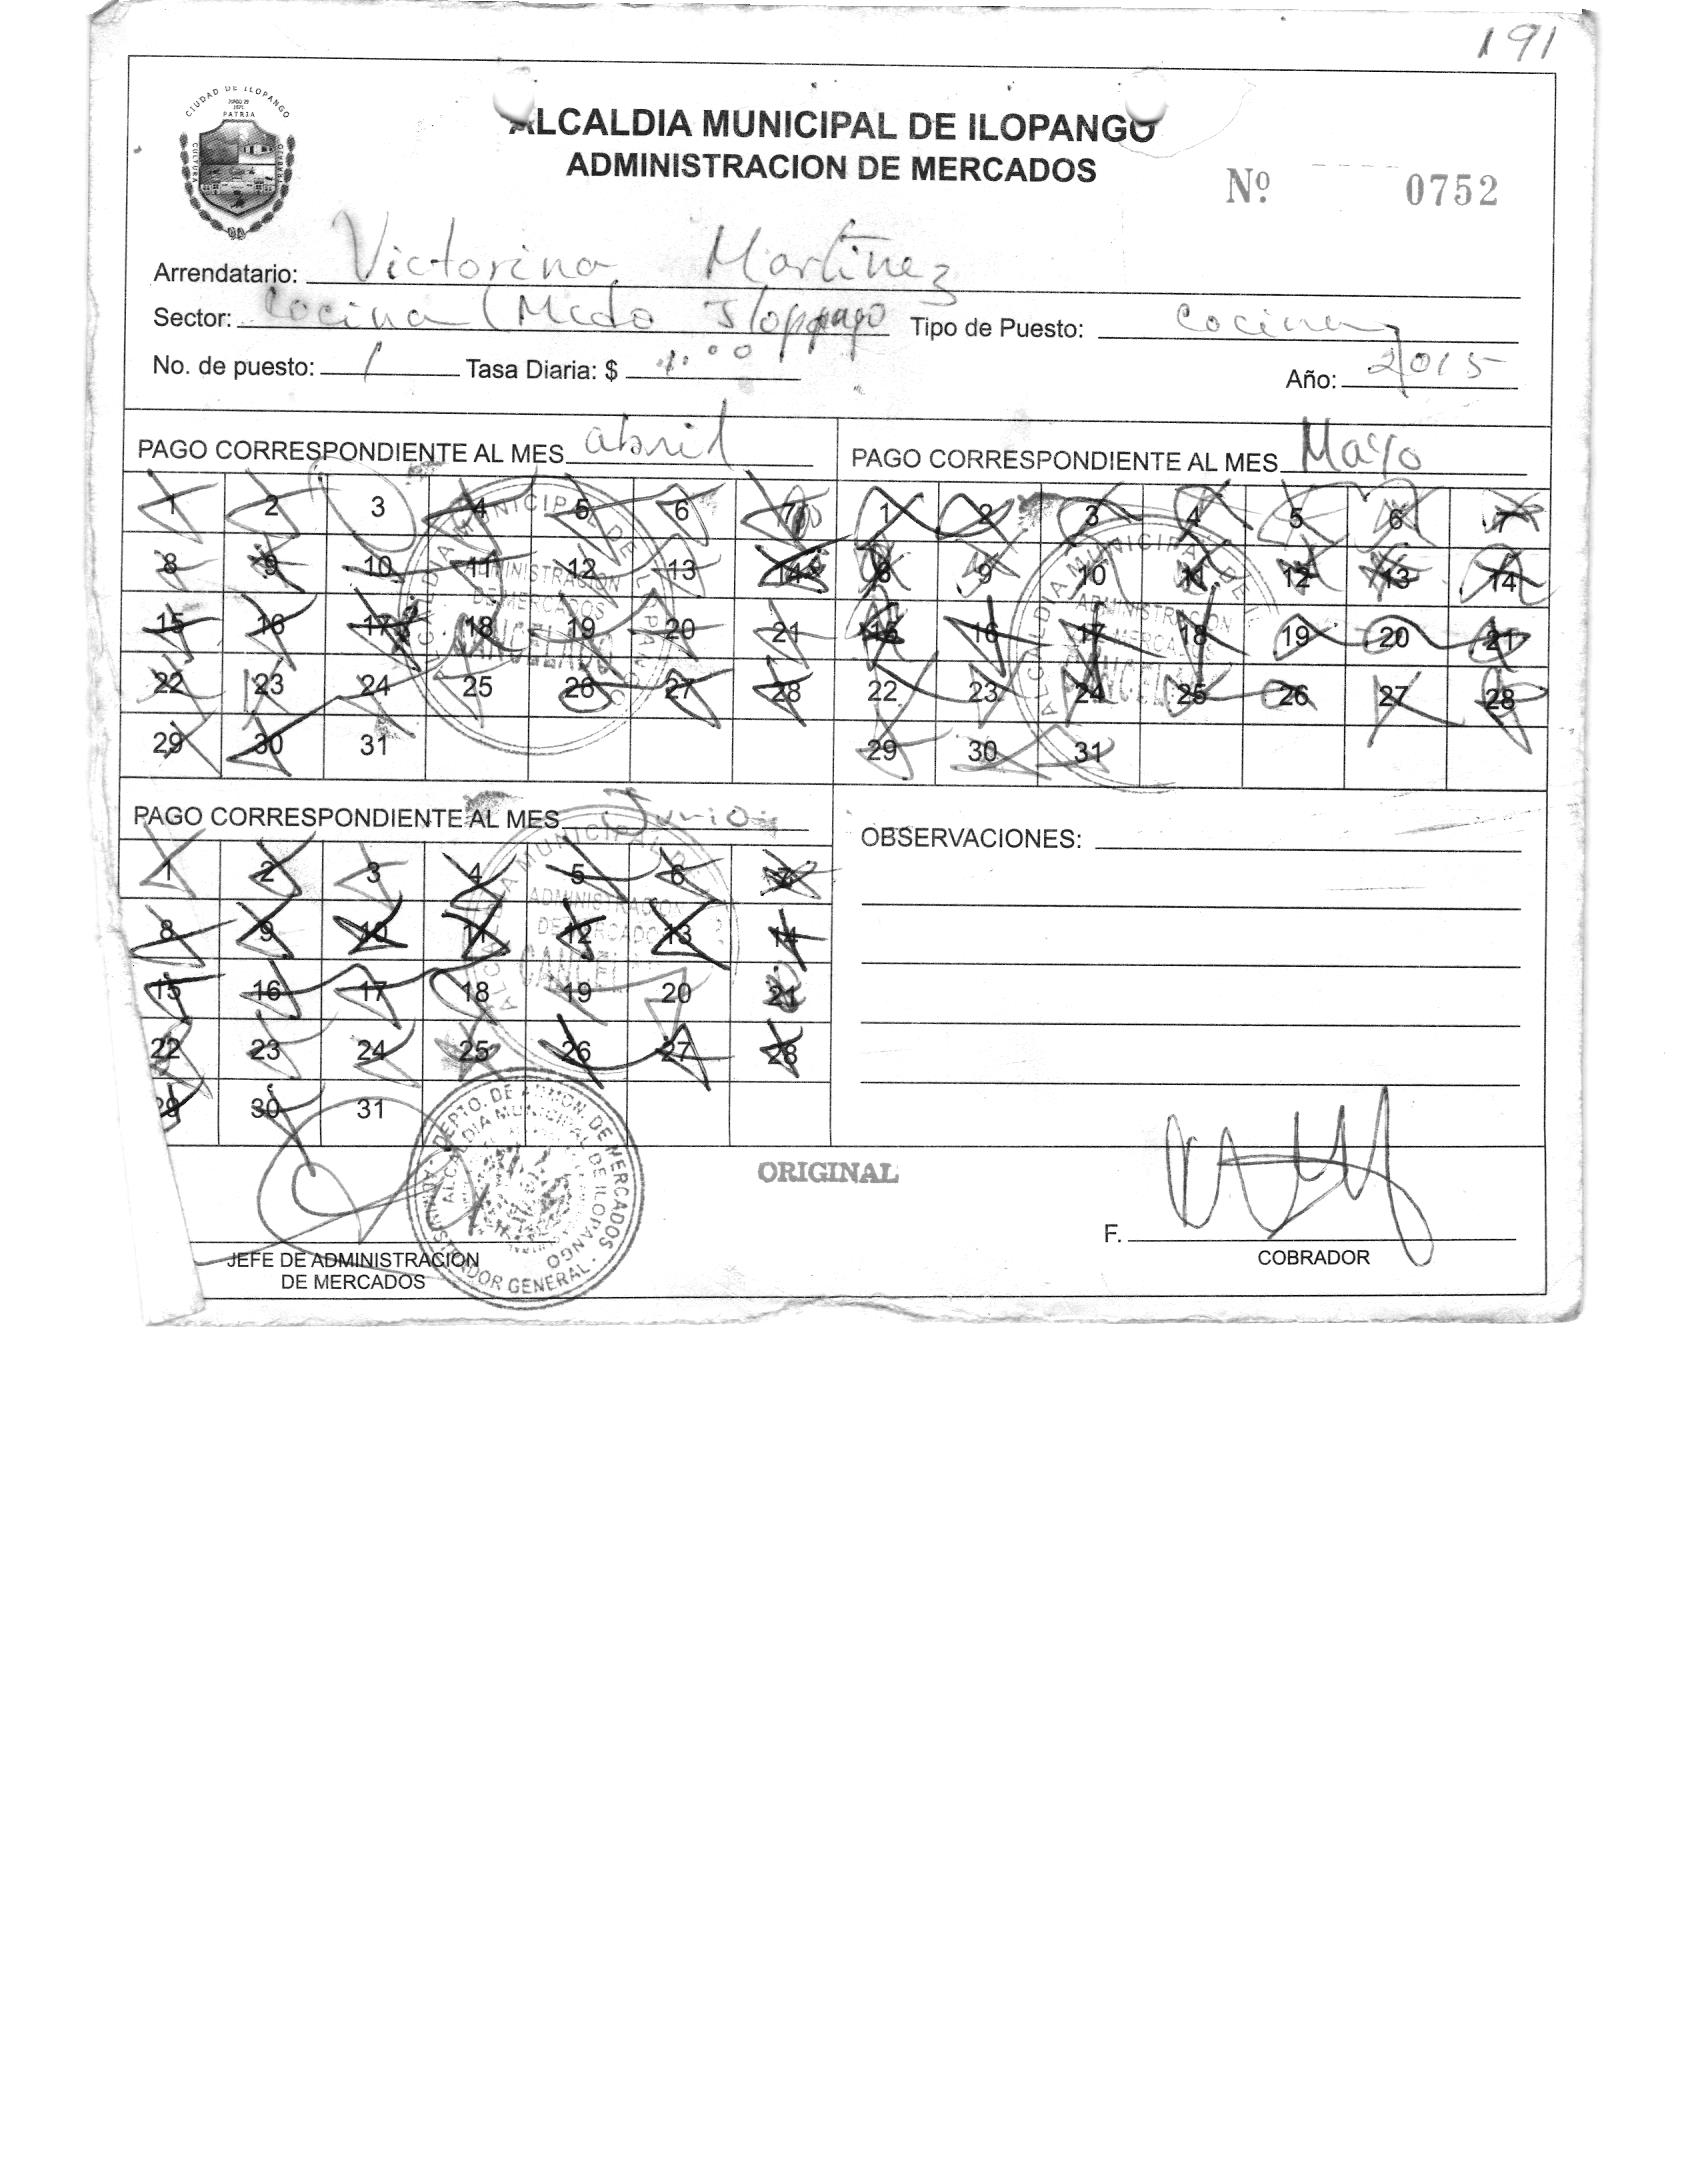 191
CIUDAD DE ILOPANGO
PATRIA
CULTURA
ALCALDIA MUNICIPAL DE ILOPANGO
ADMINISTRACION DE MERCADOS
Nº 0752
Arrendatario: Victorina Martinez
Sector: Cocina (Mcdo Ilopango Tipo de Puesto: Cocina
No. de puesto: 1 Tasa Diaria: $ 1.00 Año: 2015
PAGO CORRESPONDIENTE AL MES abril
1 2 3 4 5 6 7
8 9 10 11 12 13 14
15 16 17 18 19 20 21
22 23 24 25 26 27 28
29 30 31
ALCALDIA MUNICIPAL DE ILOPANGO
ADMINISTRACION
DE MERCADOS
CANCELADO
PAGO CORRESPONDIENTE AL MES Mayo
1 2 3 4 5 6 7
8 9 10 11 12 13 14
15 16 17 18 19 20 21
22 23 24 25 26 27 28
29 30 31
ALCALDIA MUNICIPAL DE
ADMINISTRACION
MERCADOS
PAGO CORRESPONDIENTE AL MES Junio
1 2 3 4 5 6 7
8 9 10 11 12 13 14
15 16 17 18 19 20 21
22 23 24 25 26 27 28
29 30 31
ADMINISTRACION
DE MERCADOS
OBSERVACIONES:
ORIGINAL
DEPTO. DE ADMON. DE MERCADOS
ALCALDIA MUNICIPAL DE ILOPANGO
ADMINISTRADOR GENERAL
JEFE DE ADMINISTRACION
DE MERCADOS
F.
COBRADOR